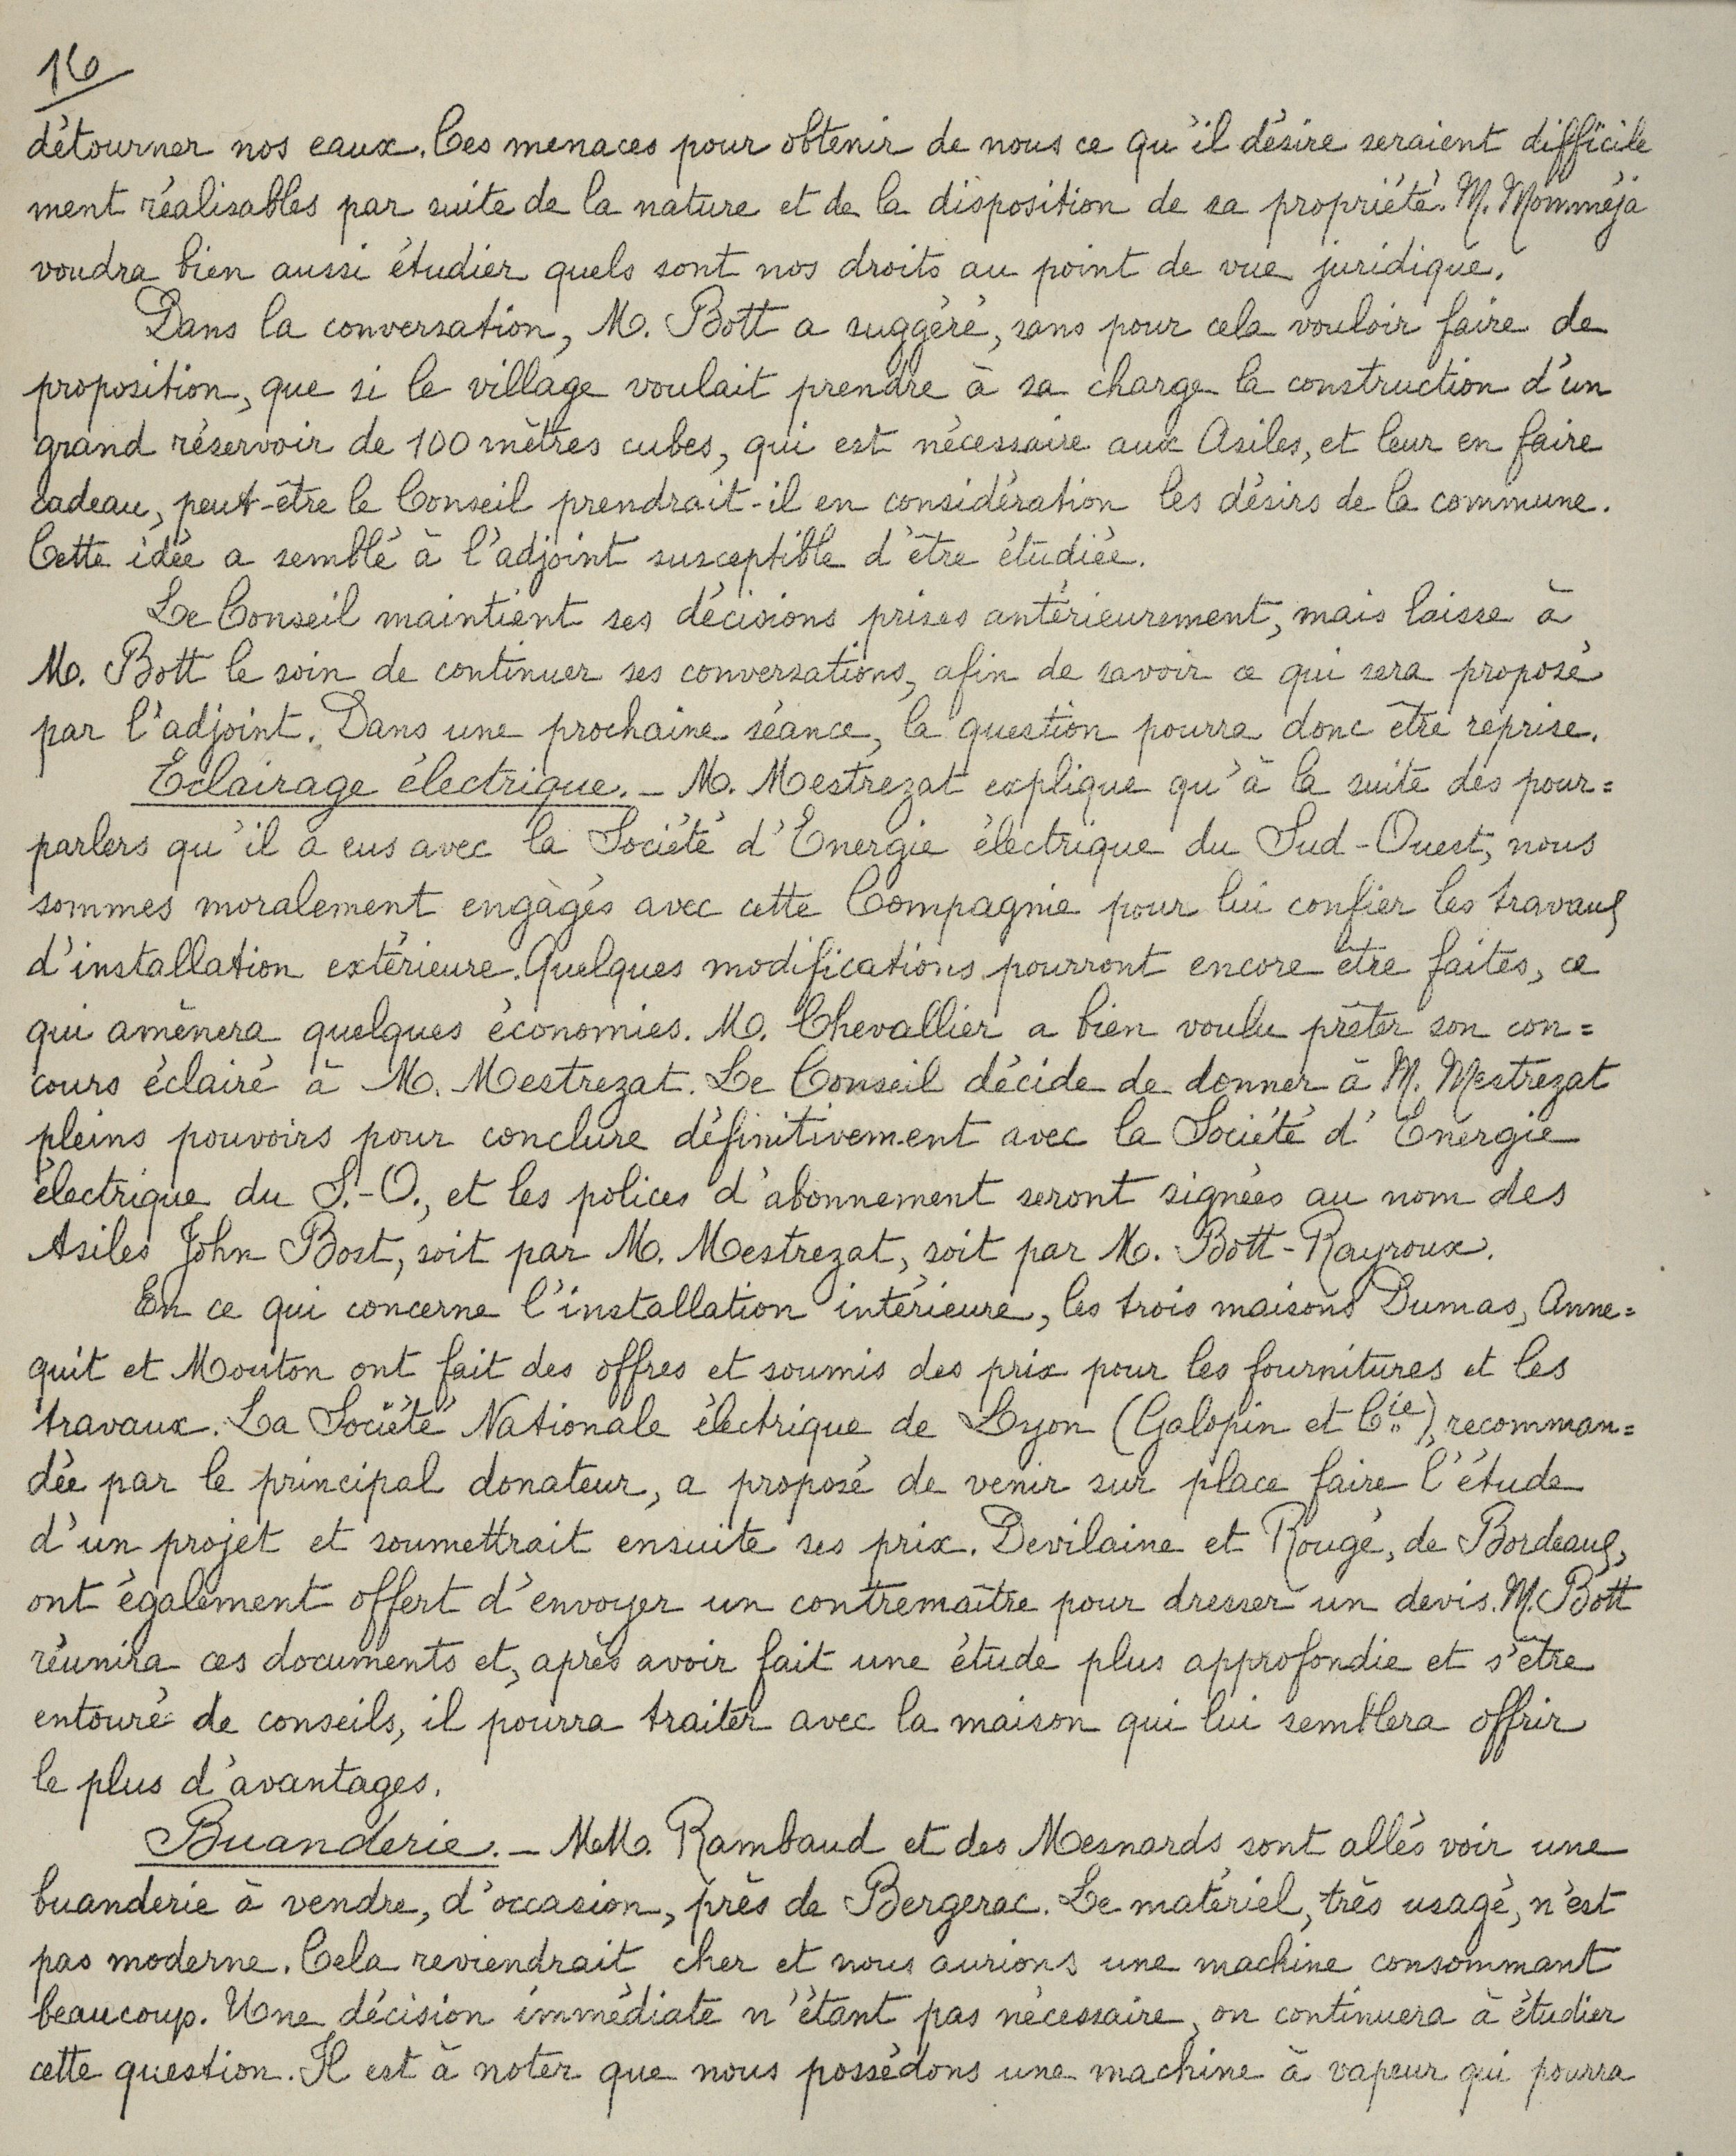 16
détourner nos eaux. Ces menaces pour obtenir de nous ce qu'il désire seraient difficile
ment réalisables par suite de la nature et de la disposition de sa propriété. M. Momméja
voudra bien aussi étudier quels sont nos droits au point de vue juridique.
Dans la conversation, M. Bott a suggéré, sans pour cela vouloir faire de
proposition, que si le village voulait prendre à sa charge la construction d'un
grand réservoir de 100 mètres cubes, qui est nécessaire aux Asiles, et leur en faire
cadeau, peut-être le Conseil prendrait-il en considération les désirs de la commune.
Cette idée a semblé à l'adjoint susceptible d'être étudiée.
Le Conseil maintient ses décisions prises antérieurement, mais laisse à
M. Bott le soin de continuer ses conversations, afin de savoir ce qui sera proposé
par l'adjoint. Dans une prochaine séance, la question pourra donc être reprise.
Eclairage électrique. — M. Mestrezat explique qu'à la suite des pour=
parlers qu'il a eus avec la Société d'Energie électrique du Sud-Ouest, nous
sommes moralement engagés avec cette Compagnie pour lui confier les travaux
d'installation extérieure. Quelques modifications pourront encore être faites, ce
qui amènera quelques économies. M. Chevallier a bien voulu prêter son con=
cours éclairé à M. Mestrezat. Le Conseil décide de donner à M. Mestrezat
pleins pouvoirs pour conclure définitivement avec la Société d'Energie
électrique du S.-O., et les polices d'abonnement seront signées au nom des
Asiles John Bost, soit par M. Mestrezat, soit par M. Bott-Rayroux.
En ce qui concerne l'installation intérieure, les trois maisons Dumas, Anne=
quit et Mouton ont fait des offres et soumis des prix pour les fournitures et les
travaux. La Société Nationale électrique de Lyon (Galopin et Cie), recomman=
dée par le principal donateur, a proposé de venir sur place faire l'étude
d'un projet et soumettrait ensuite ses prix. Devilaine et Rougé, de Bordeaux,
ont également offert d'envoyer un contremaître pour dresser un devis. M. Bott
réunira ces documents et, après avoir fait une étude plus approfondie et s'être
entouré de conseils, il pourra traiter avec la maison qui lui semblera offrir
le plus d'avantages.
Buanderie. — MM. Rambaud et des Mesnards sont allés voir une
buanderie à vendre, d'occasion, près de Bergerac. Le matériel, très usagé, n'est
pas moderne. Cela reviendrait cher et nous aurions une machine consommant
beaucoup. Une décision immédiate n'étant pas nécessaire, on continuera à étudier
cette question. Il est à noter que nous possédons une machine à vapeur qui pourra